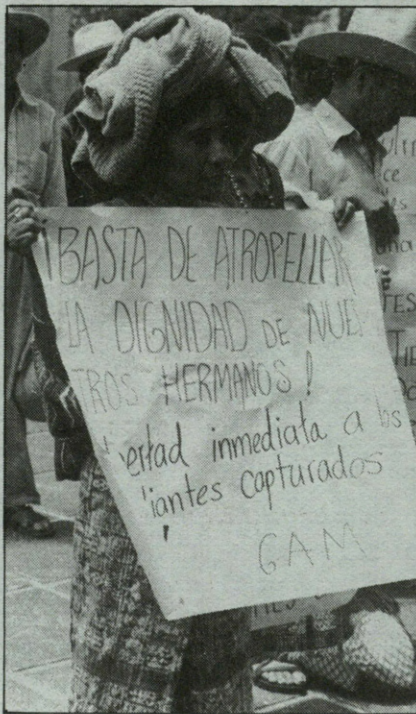 ¡BASTA DE ATROPELLAR
LA DIGNIDAD DE NUES
TROS HERMANOS!
ertad inmediata a los
iantes capturados
GAM